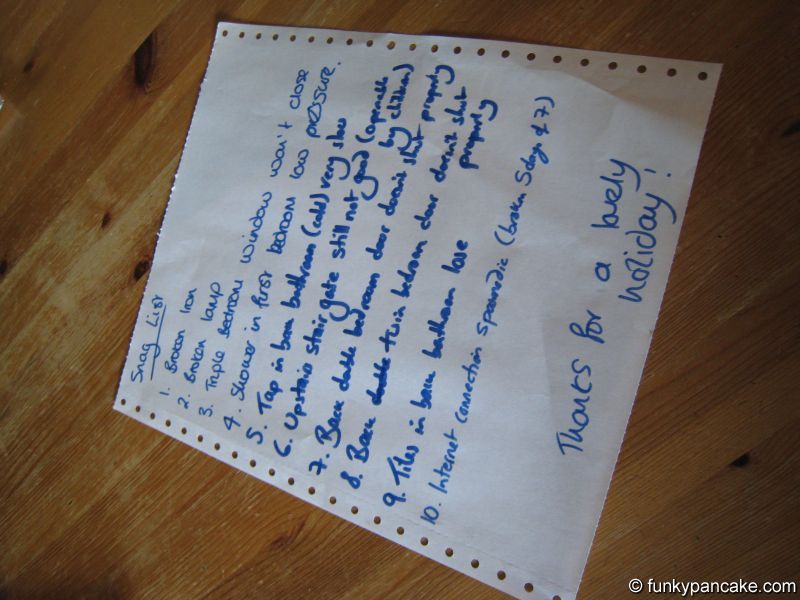 Snag List
1. Broken Iron
2. Broken lamp
3. Triple bedroom window won't close
4. Shower in first bedroom low pressure.
5. Tap in back bathroom (cold) very slow
6. Upstairs stair gate still not good (openable
by children)
7. Back double bedroom door doesn't shut properly
8. Back double twin bedroom door doesn't shut
properly
9. Tiles in back bathroom loose
10. Internet connection sporadic (broken 5 days of 7)
Thanks for a lovely
holiday!
© funkypancake.com